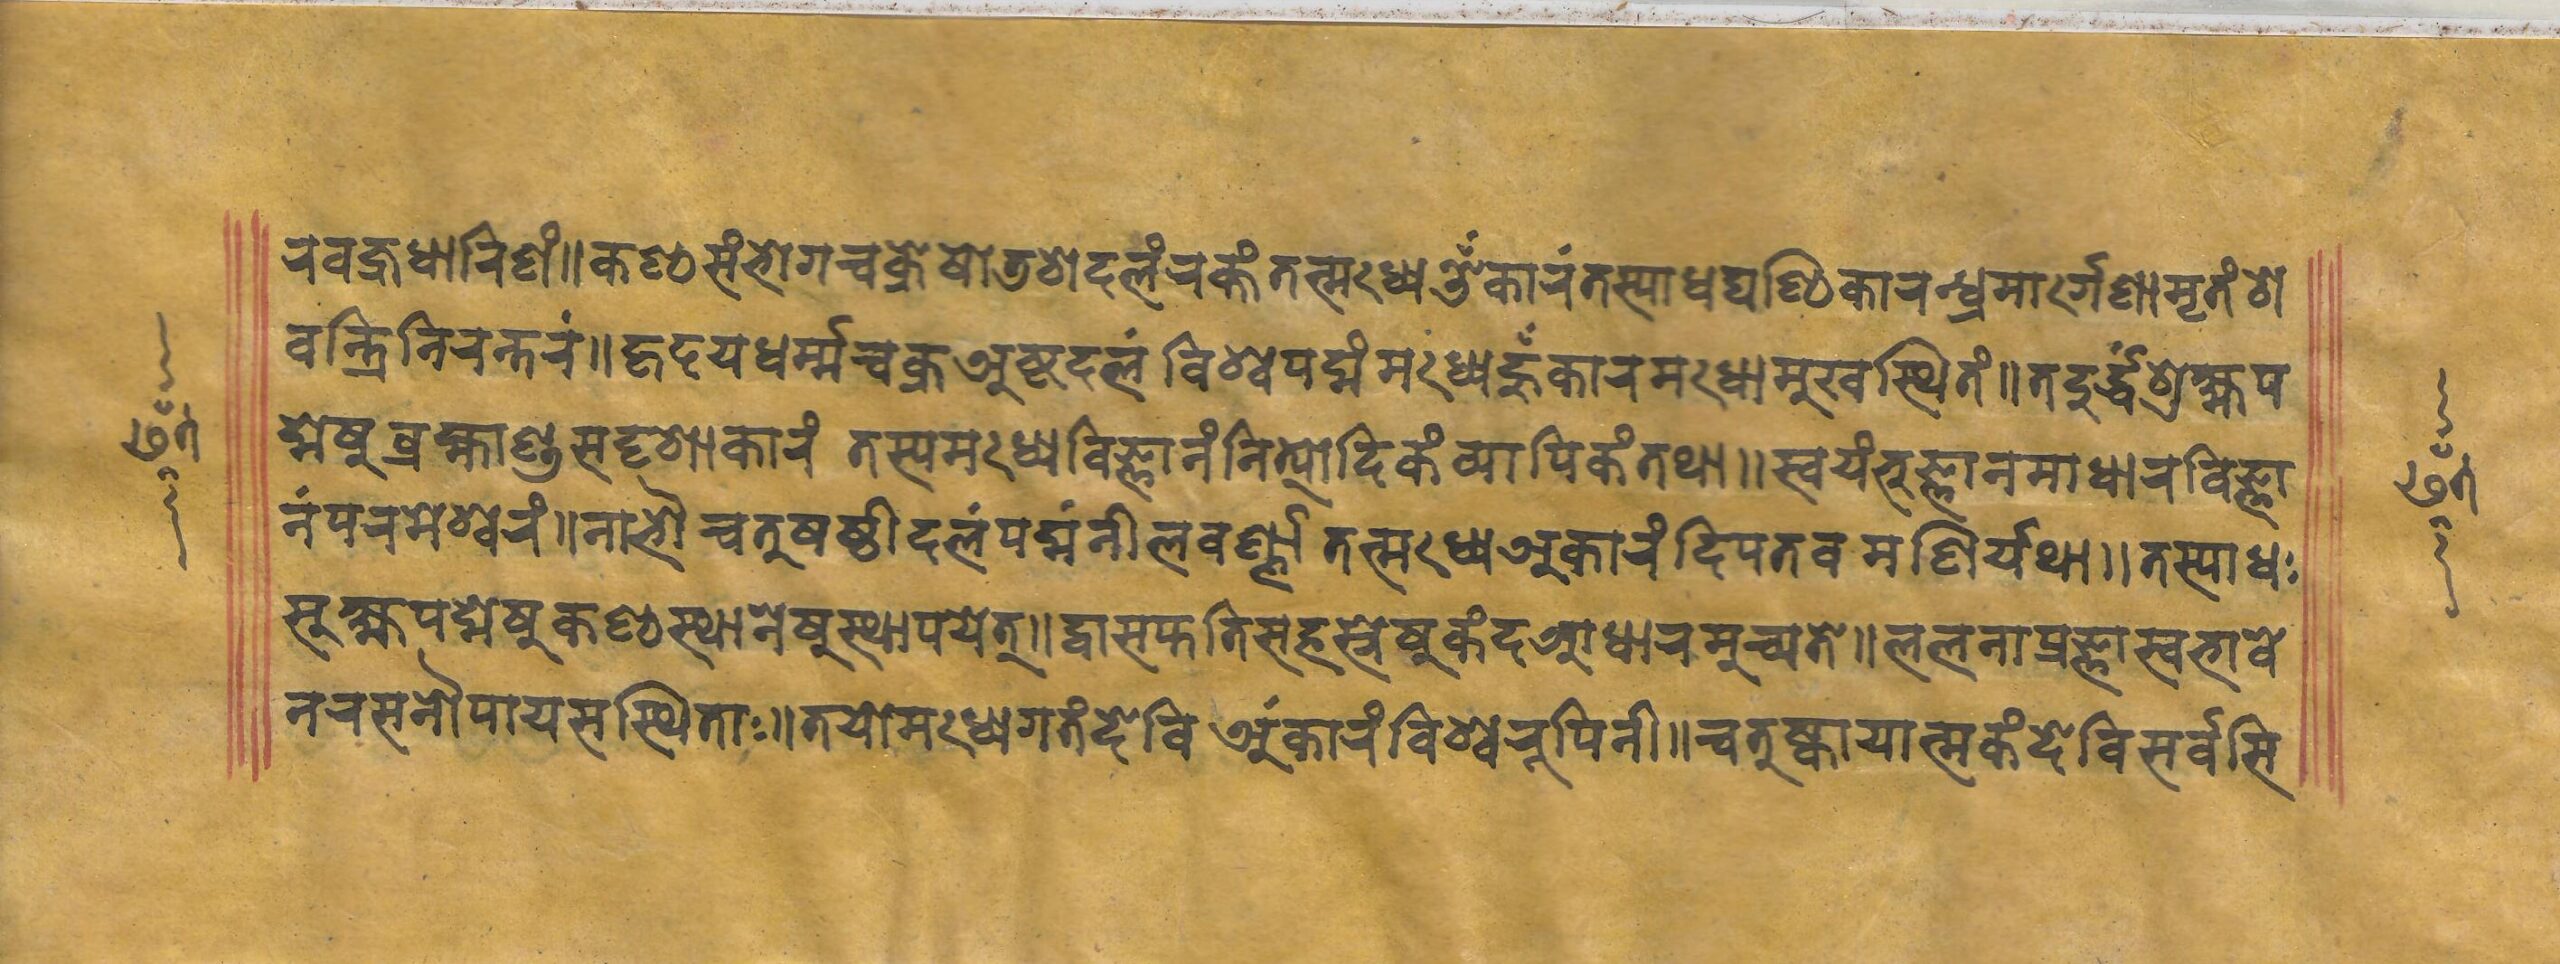 रवज्रधारिणं॥कण्ठसंभोगचक्रेषोडशदलंरक्तंतन्मध्येॐकारंतस्याधघण्ठिकारन्ध्रमार्गेणामृतंश्र
वन्त्रिनिरन्तरं॥हृदयधर्म्मचक्रअष्टदलं विश्वपद्मंमध्येहूँकारमधोमुखस्थितं॥तदुर्द्ध्वंश्रेह्मप
द्मेषुब्रह्माण्डसदृशाकारं तस्यमध्येविज्ञानंनित्योदिकंव्यापिकंतथा॥स्वयंभुज्ञानमाधारविज्ञा
नंपरमेश्वरं॥नाभौचतुषष्ठीदलंपद्मंनीलवर्ण्णा तन्मध्येअकारंदिपतवमणिर्यथा॥तस्याधः
सूक्ष्मपद्मेषुकण्ठस्थानेषुस्थापयेत्॥द्वासप्ततिसहस्रेषुकंदआधारमुच्यते॥ललनाप्रज्ञास्वभावे
नरसनौपायसस्थिताः॥तयोमध्येगतंदेवि अंकारंविश्वरूपिनी॥चतुष्कायात्मकंदेविसर्वसि